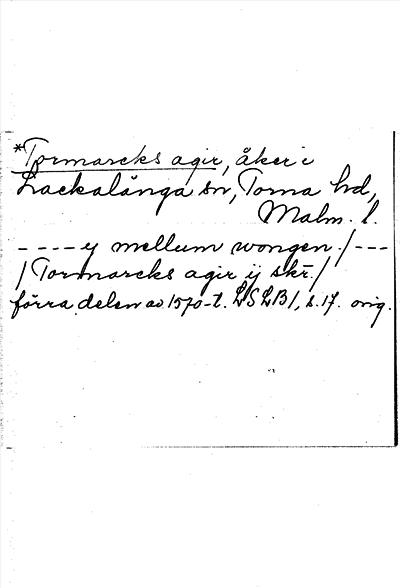 *Tormarcks agir, åker i
Lackalänga sn, Torna hd,
Malm. l.
- - - - y mellum wongen / - - -
/ Tormarcks agir ij skr. /
förra delen av 1570-t. LSLB1, s. 17. orig.